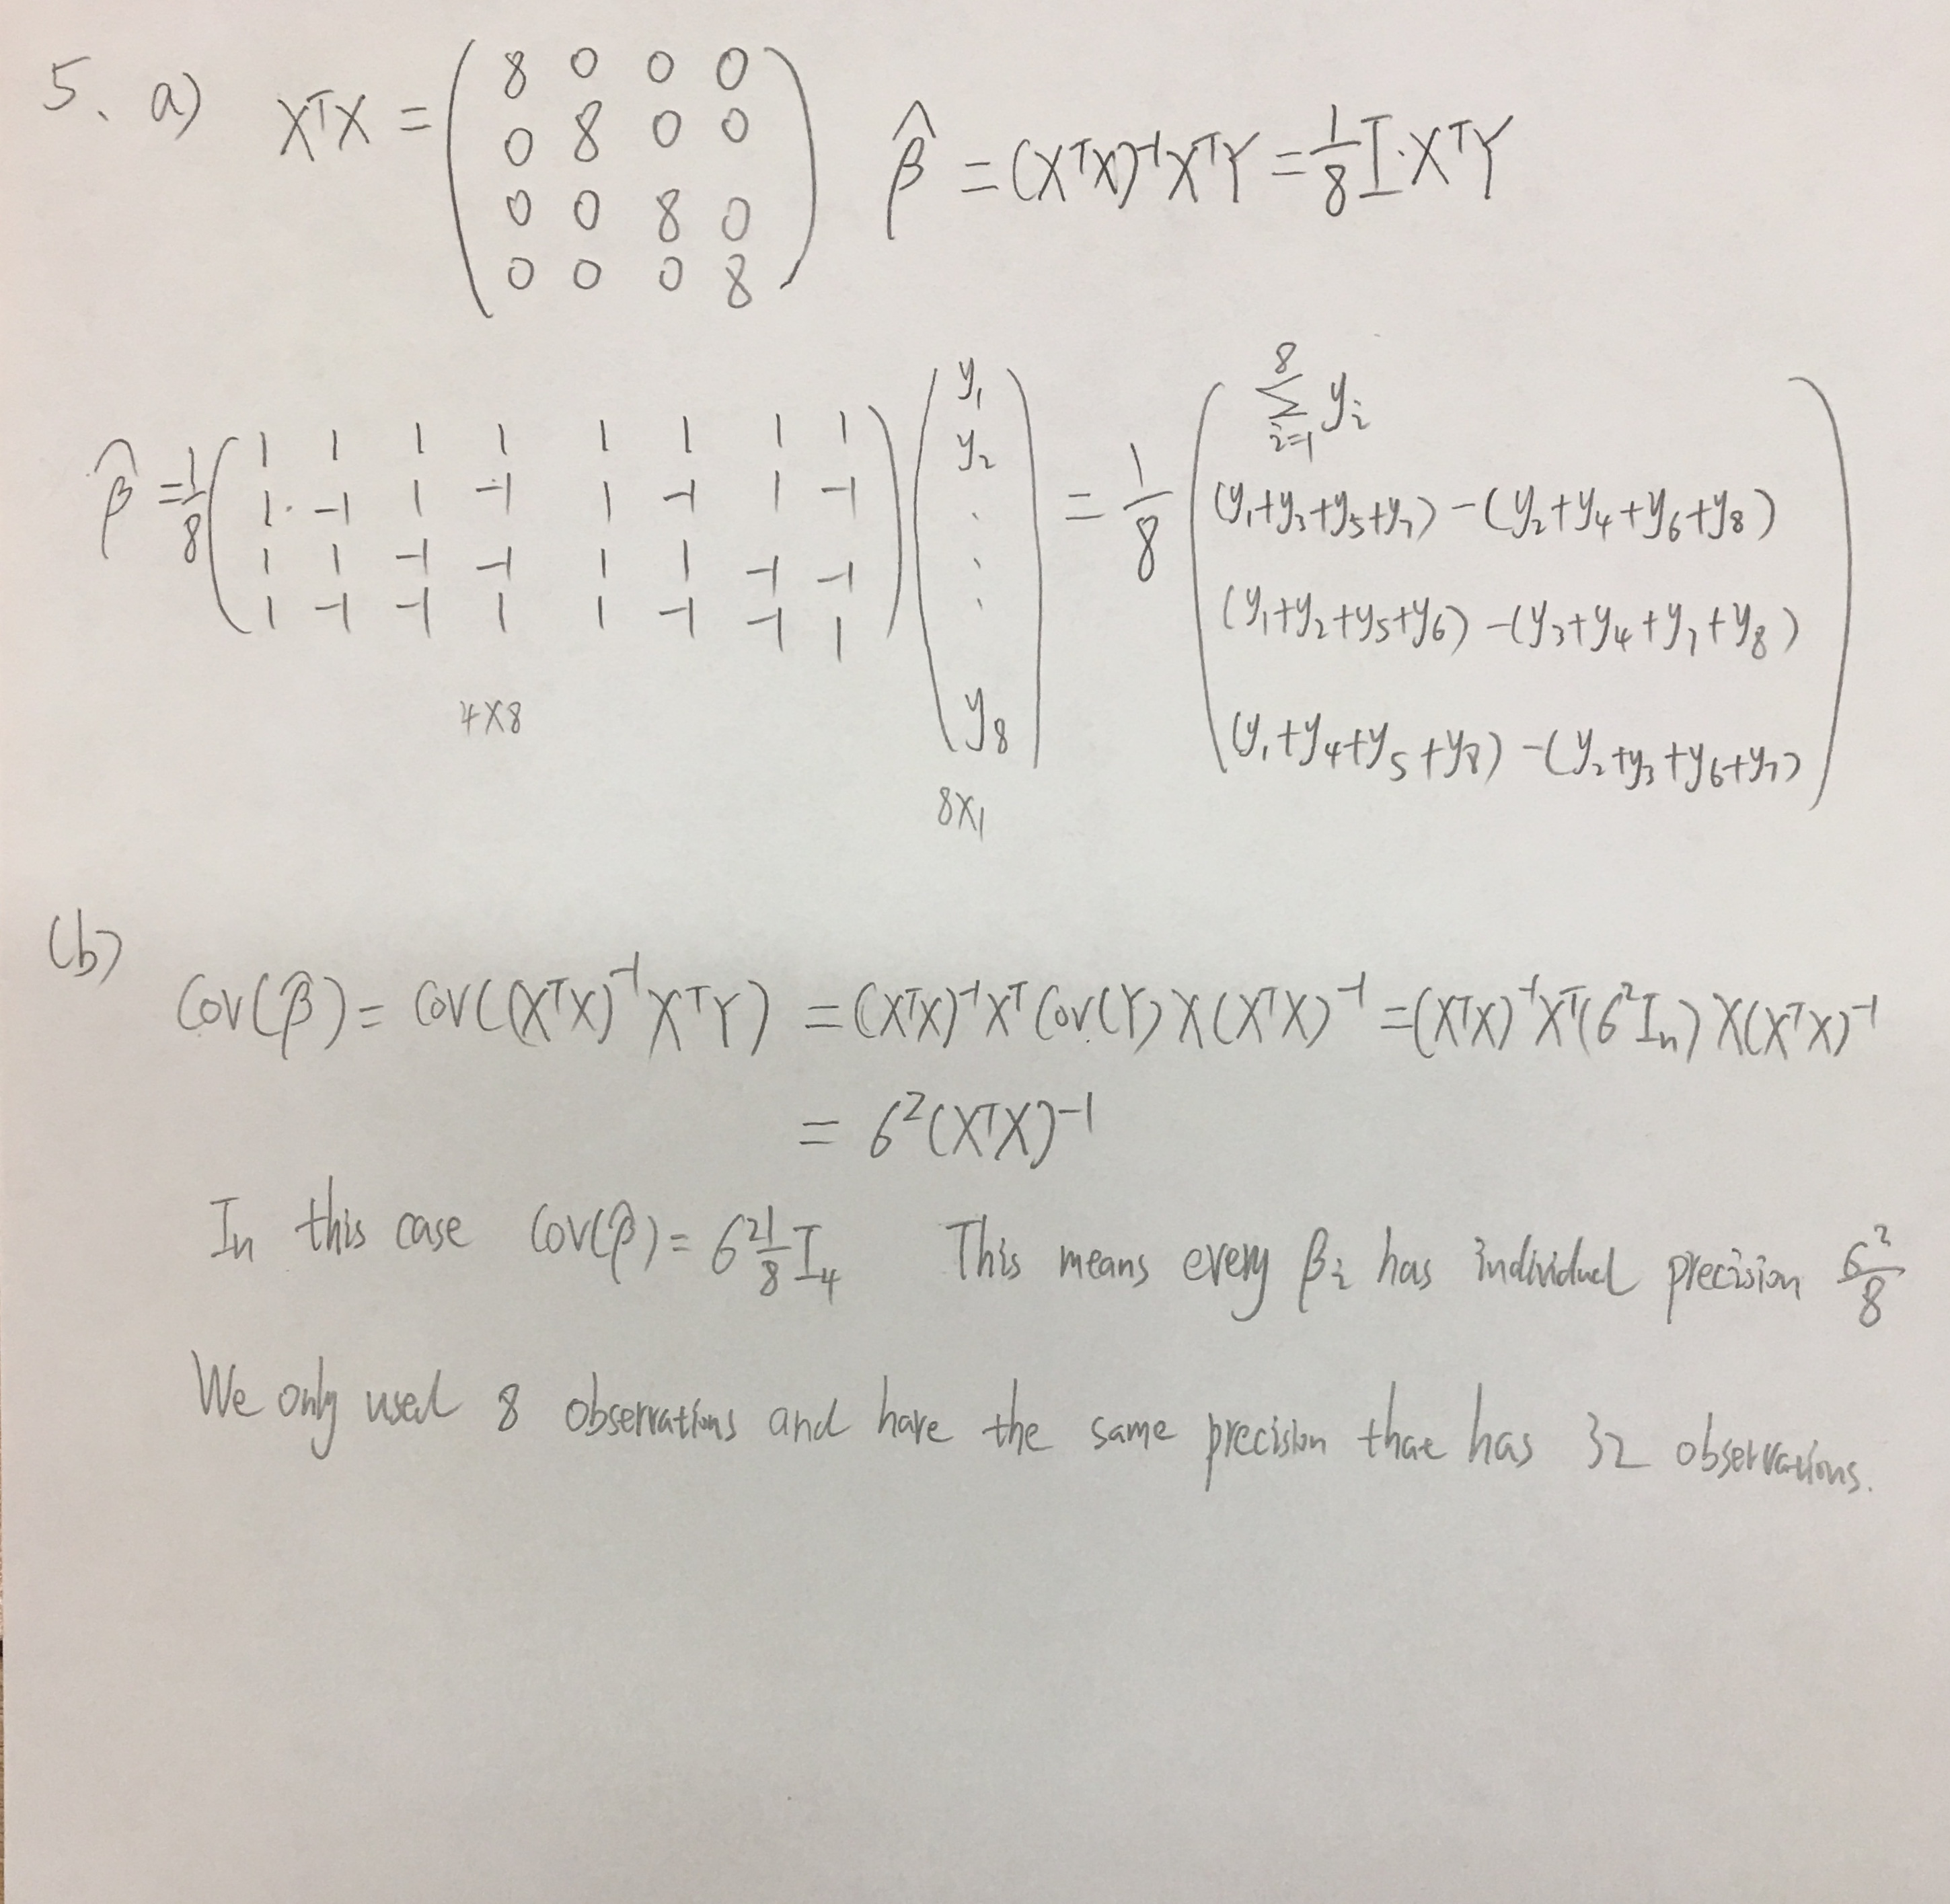 5. a) XᵀX = ( 8 0 0 0 β̂ = (XᵀX)⁻¹XᵀY = 1/8 I·XᵀY
0 8 0 0
0 0 8 0
0 0 0 8 )
β̂ = 1/8 ( 1 1 1 1 1 1 1 1 ) ( y₁ ) = 1/8 ( ∑ᵢ₌₁⁸ yᵢ
1 -1 1 -1 1 -1 1 -1 y₂ (y₁+y₃+y₅+y₇) - (y₂+y₄+y₆+y₈)
1 1 -1 -1 1 1 -1 -1 ⋮ (y₁+y₂+y₅+y₆) - (y₃+y₄+y₇+y₈)
1 -1 -1 1 1 -1 -1 1 y₈ (y₁+y₄+y₅+y₈) - (y₂+y₃+y₆+y₇) )
4X8
8X1
(b)
Cov(β̂) = Cov((XᵀX)⁻¹XᵀY) = (XᵀX)⁻¹Xᵀ Cov(Y) X(XᵀX)⁻¹ = (XᵀX)⁻¹Xᵀ(σ²Iₙ) X(XᵀX)⁻¹
= σ²(XᵀX)⁻¹
In this case Cov(β̂) = σ² 1/8 I₄ This means every βᵢ has individual precision σ²/8
We only used 8 observations and have the same precision that has 32 observations.